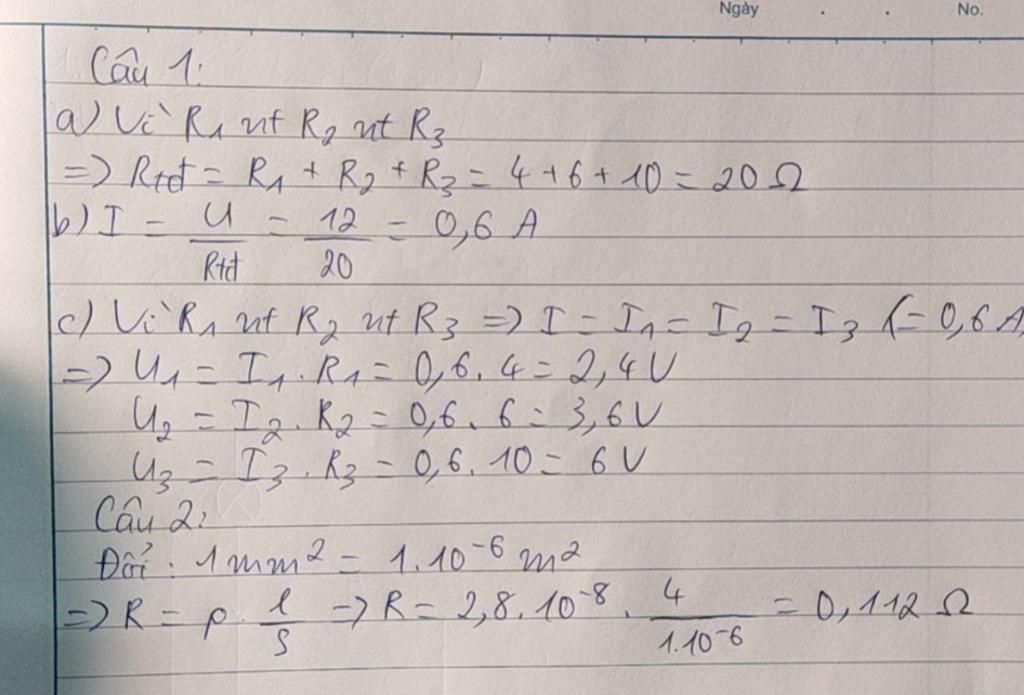 Ngày . . No.
Câu 1:
a) Vì R₁ nt R₂ nt R₃
=> Rtđ = R₁ + R₂ + R₃ = 4 + 6 + 10 = 20 Ω
b) I = U/Rtđ = 12/20 = 0,6 A
c) Vì R₁ nt R₂ nt R₃ => I = I₁ = I₂ = I₃ (= 0,6 A
=> U₁ = I₁ . R₁ = 0,6 . 4 = 2,4 V
U₂ = I₂ . R₂ = 0,6 . 6 = 3,6 V
U₃ = I₃ . R₃ = 0,6 . 10 = 6 V
Câu 2:
Đổi : 1 mm² = 1.10⁻⁶ m²
=> R = ρ . l/S => R = 2,8.10⁻⁸ . 4/1.10⁻⁶ = 0,112 Ω